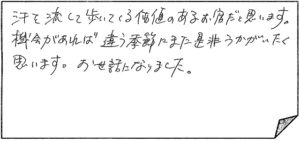 汗を流して歩いてくる価値のあるお宿だと思います。
機会があれば違う季節にまた是非うかがいたく
思います。お世話になりました。